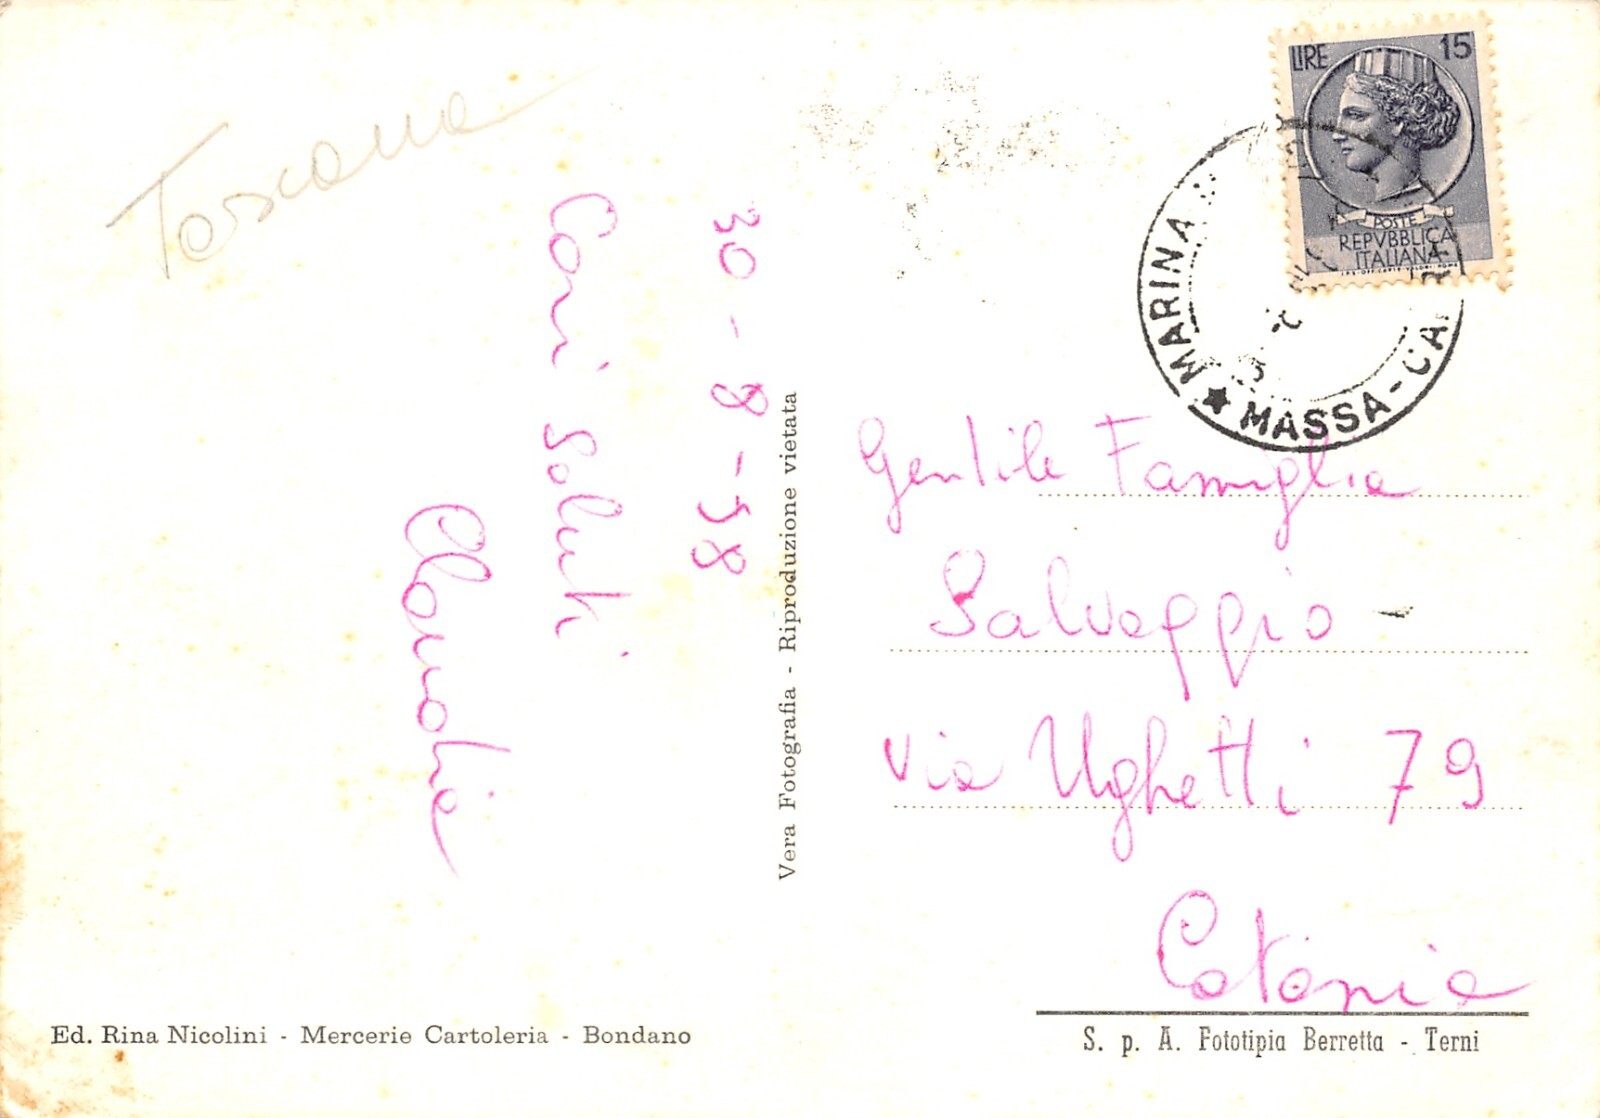 Toscana
30-8-58
Cari Saluti
Claudia
Vera Fotografia - Riproduzione vietata
Ed. Rina Nicolini - Mercerie Cartoleria - Bondano
LIRE 15
POSTE
REPVBBLICA
ITALIANA
MARINA
MASSA-CA
Gentile Famiglia
Salvaggio -
Via Ughetti 79
Catania
S. p. A. Fototipia Berretta - Terni